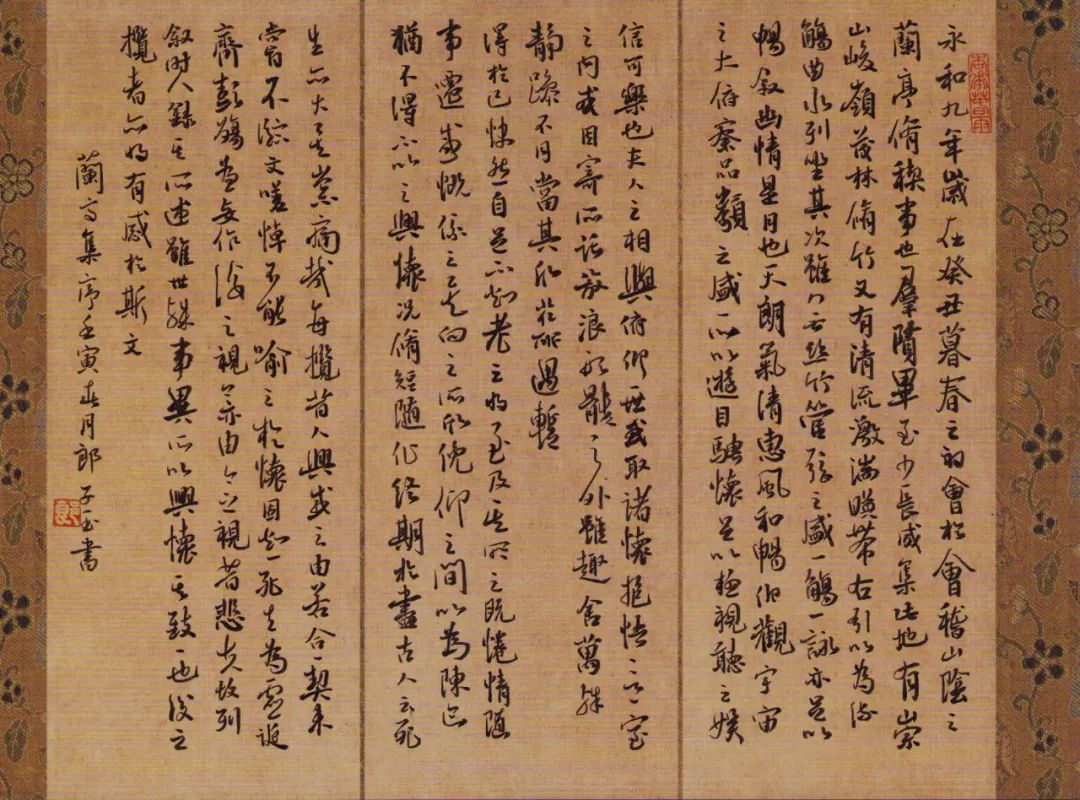 永和九年歲在癸丑暮春之初會於會稽山陰之
蘭亭脩稧事也羣賢畢至少長咸集此地有崇
山峻嶺茂林脩竹又有清流激湍暎帶右引以為流
觴曲水列坐其次雖無絲竹管弦之盛一觴一詠亦足以
暢叙幽情是日也天朗氣清惠風和暢仰觀宇宙
之大俯察品類之盛所以遊目騁懷足以極視聽之娛
信可樂也夫人之相與俯仰一世或取諸懷抱悟言一室
之內或因寄所託放浪形骸之外雖趣舍萬殊
靜躁不同當其欣於所遇暫
得於己快然自足不知老之將至及其所之既惓情隨
事遷感慨係之矣向之所欣俛仰之間以為陳迹
猶不得不以之興懷況脩短隨化終期於盡古人云死
生亦大矣豈痛哉每攬昔人興感之由若合一契未
嘗不臨文嗟悼不能喻之於懷固知一死生為虛誕
齊彭殤為妄作後之視亦由今之視昔悲夫故列
叙時人錄其所述雖世殊事異所以興懷其致一也後之
攬者亦將有感於斯文
蘭亭集序壬寅春月郎子玉書